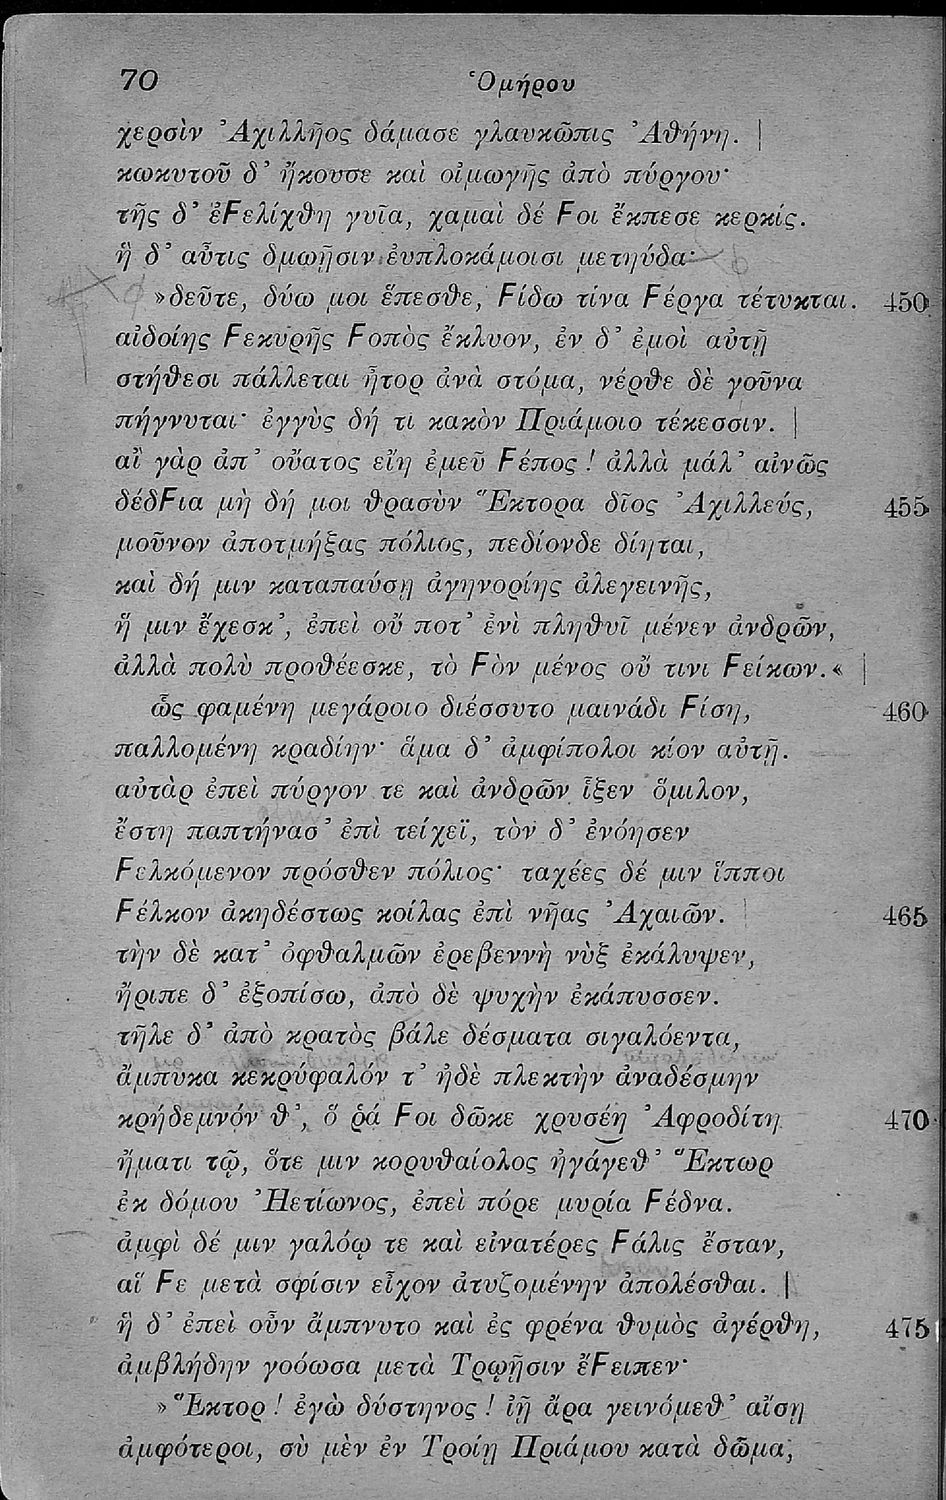 70 Ὁμήρου
χερσὶν Ἀχιλλῆος δάμασε γλαυκῶπις Ἀθήνη. |
κωκυτοῦ δ’ ἤκουσε καὶ οἰμωγῆς ἀπὸ πύργου·
τῆς δ’ ἐϜελίχθη γυῖα, χαμαὶ δέ Ϝοι ἔκπεσε κερκίς.
ἣ δ’ αὖτις δμωῇσιν ἐυπλοκάμοισι μετηύδα·
»δεῦτε, δύω μοι ἕπεσθε, Ϝίδω τίνα Ϝέργα τέτυκται. 450
αἰδοίης Ϝεκυρῆς Ϝοπὸς ἔκλυον, ἐν δ’ ἐμοὶ αὐτῇ
στήθεσι πάλλεται ἦτορ ἀνὰ στόμα, νέρθε δὲ γοῦνα
πήγνυται· ἐγγὺς δή τι κακὸν Πριάμοιο τέκεσσιν. |
αἲ γὰρ ἀπ’ οὔατος εἴη ἐμεῦ Ϝέπος! ἀλλὰ μάλ’ αἰνῶς
δέδϜια μὴ δή μοι θρασὺν Ἕκτορα δῖος Ἀχιλλεύς, 455
μοῦνον ἀποτμήξας πόλιος, πεδίονδε δίηται,
καὶ δή μιν καταπαύσῃ ἀγηνορίης ἀλεγεινῆς,
ἥ μιν ἔχεσκ’, ἐπεὶ οὔ ποτ’ ἐνὶ πληθυῖ μένεν ἀνδρῶν,
ἀλλὰ πολὺ προθέεσκε, τὸ Ϝὸν μένος οὔ τινι Ϝείκων.« |
ὣς φαμένη μεγάροιο διέσσυτο μαινάδι Ϝίση, 460
παλλομένη κραδίην· ἅμα δ’ ἀμφίπολοι κίον αὐτῇ.
αὐτὰρ ἐπεὶ πύργον τε καὶ ἀνδρῶν ἷξεν ὅμιλον,
ἔστη παπτήνασ’ ἐπὶ τείχεϊ, τὸν δ’ ἐνόησεν
Ϝελκόμενον πρόσθεν πόλιος· ταχέες δέ μιν ἵπποι
Ϝέλκον ἀκηδέστως κοίλας ἐπὶ νῆας Ἀχαιῶν. 465
τὴν δὲ κατ’ ὀφθαλμῶν ἐρεβεννὴ νὺξ ἐκάλυψεν,
ἤριπε δ’ ἐξοπίσω, ἀπὸ δὲ ψυχὴν ἐκάπυσσεν.
τῆλε δ’ ἀπὸ κρατὸς βάλε δέσματα σιγαλόεντα,
ἄμπυκα κεκρύφαλόν τ’ ἠδὲ πλεκτὴν ἀναδέσμην
κρήδεμνόν θ’, ὅ ῥά Ϝοι δῶκε χρυσέη Ἀφροδίτη 470
ἤματι τῷ, ὅτε μιν κορυθαίολος ἠγάγεθ’ Ἕκτωρ
ἐκ δόμου Ἠετίωνος, ἐπεὶ πόρε μυρία Ϝέδνα.
ἀμφὶ δέ μιν γαλόῳ τε καὶ εἰνατέρες Ϝάλις ἔσταν,
αἵ Ϝε μετὰ σφίσιν εἶχον ἀτυζομένην ἀπολέσθαι. |
ἣ δ’ ἐπεὶ οὖν ἄμπνυτο καὶ ἐς φρένα θυμὸς ἀγέρθη, 475
ἀμβλήδην γοόωσα μετὰ Τρῳῇσιν ἔϜειπεν·
»Ἕκτορ! ἐγὼ δύστηνος! ἰῇ ἄρα γεινόμεθ’ αἴσῃ
ἀμφότεροι, σὺ μὲν ἐν Τροίῃ Πριάμου κατὰ δῶμα,